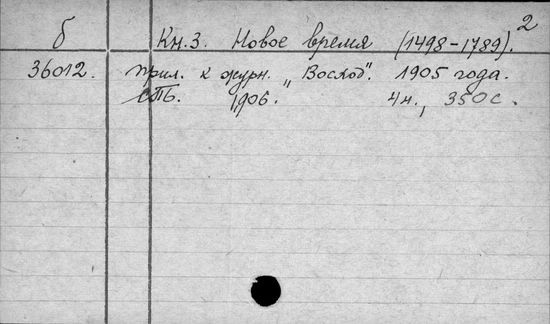 2
б Кн.3. Новое время (1498-1789).
36012. прил. к журн. „Восход". 1905 года.
СПб. 1906. 4н., 350 с.